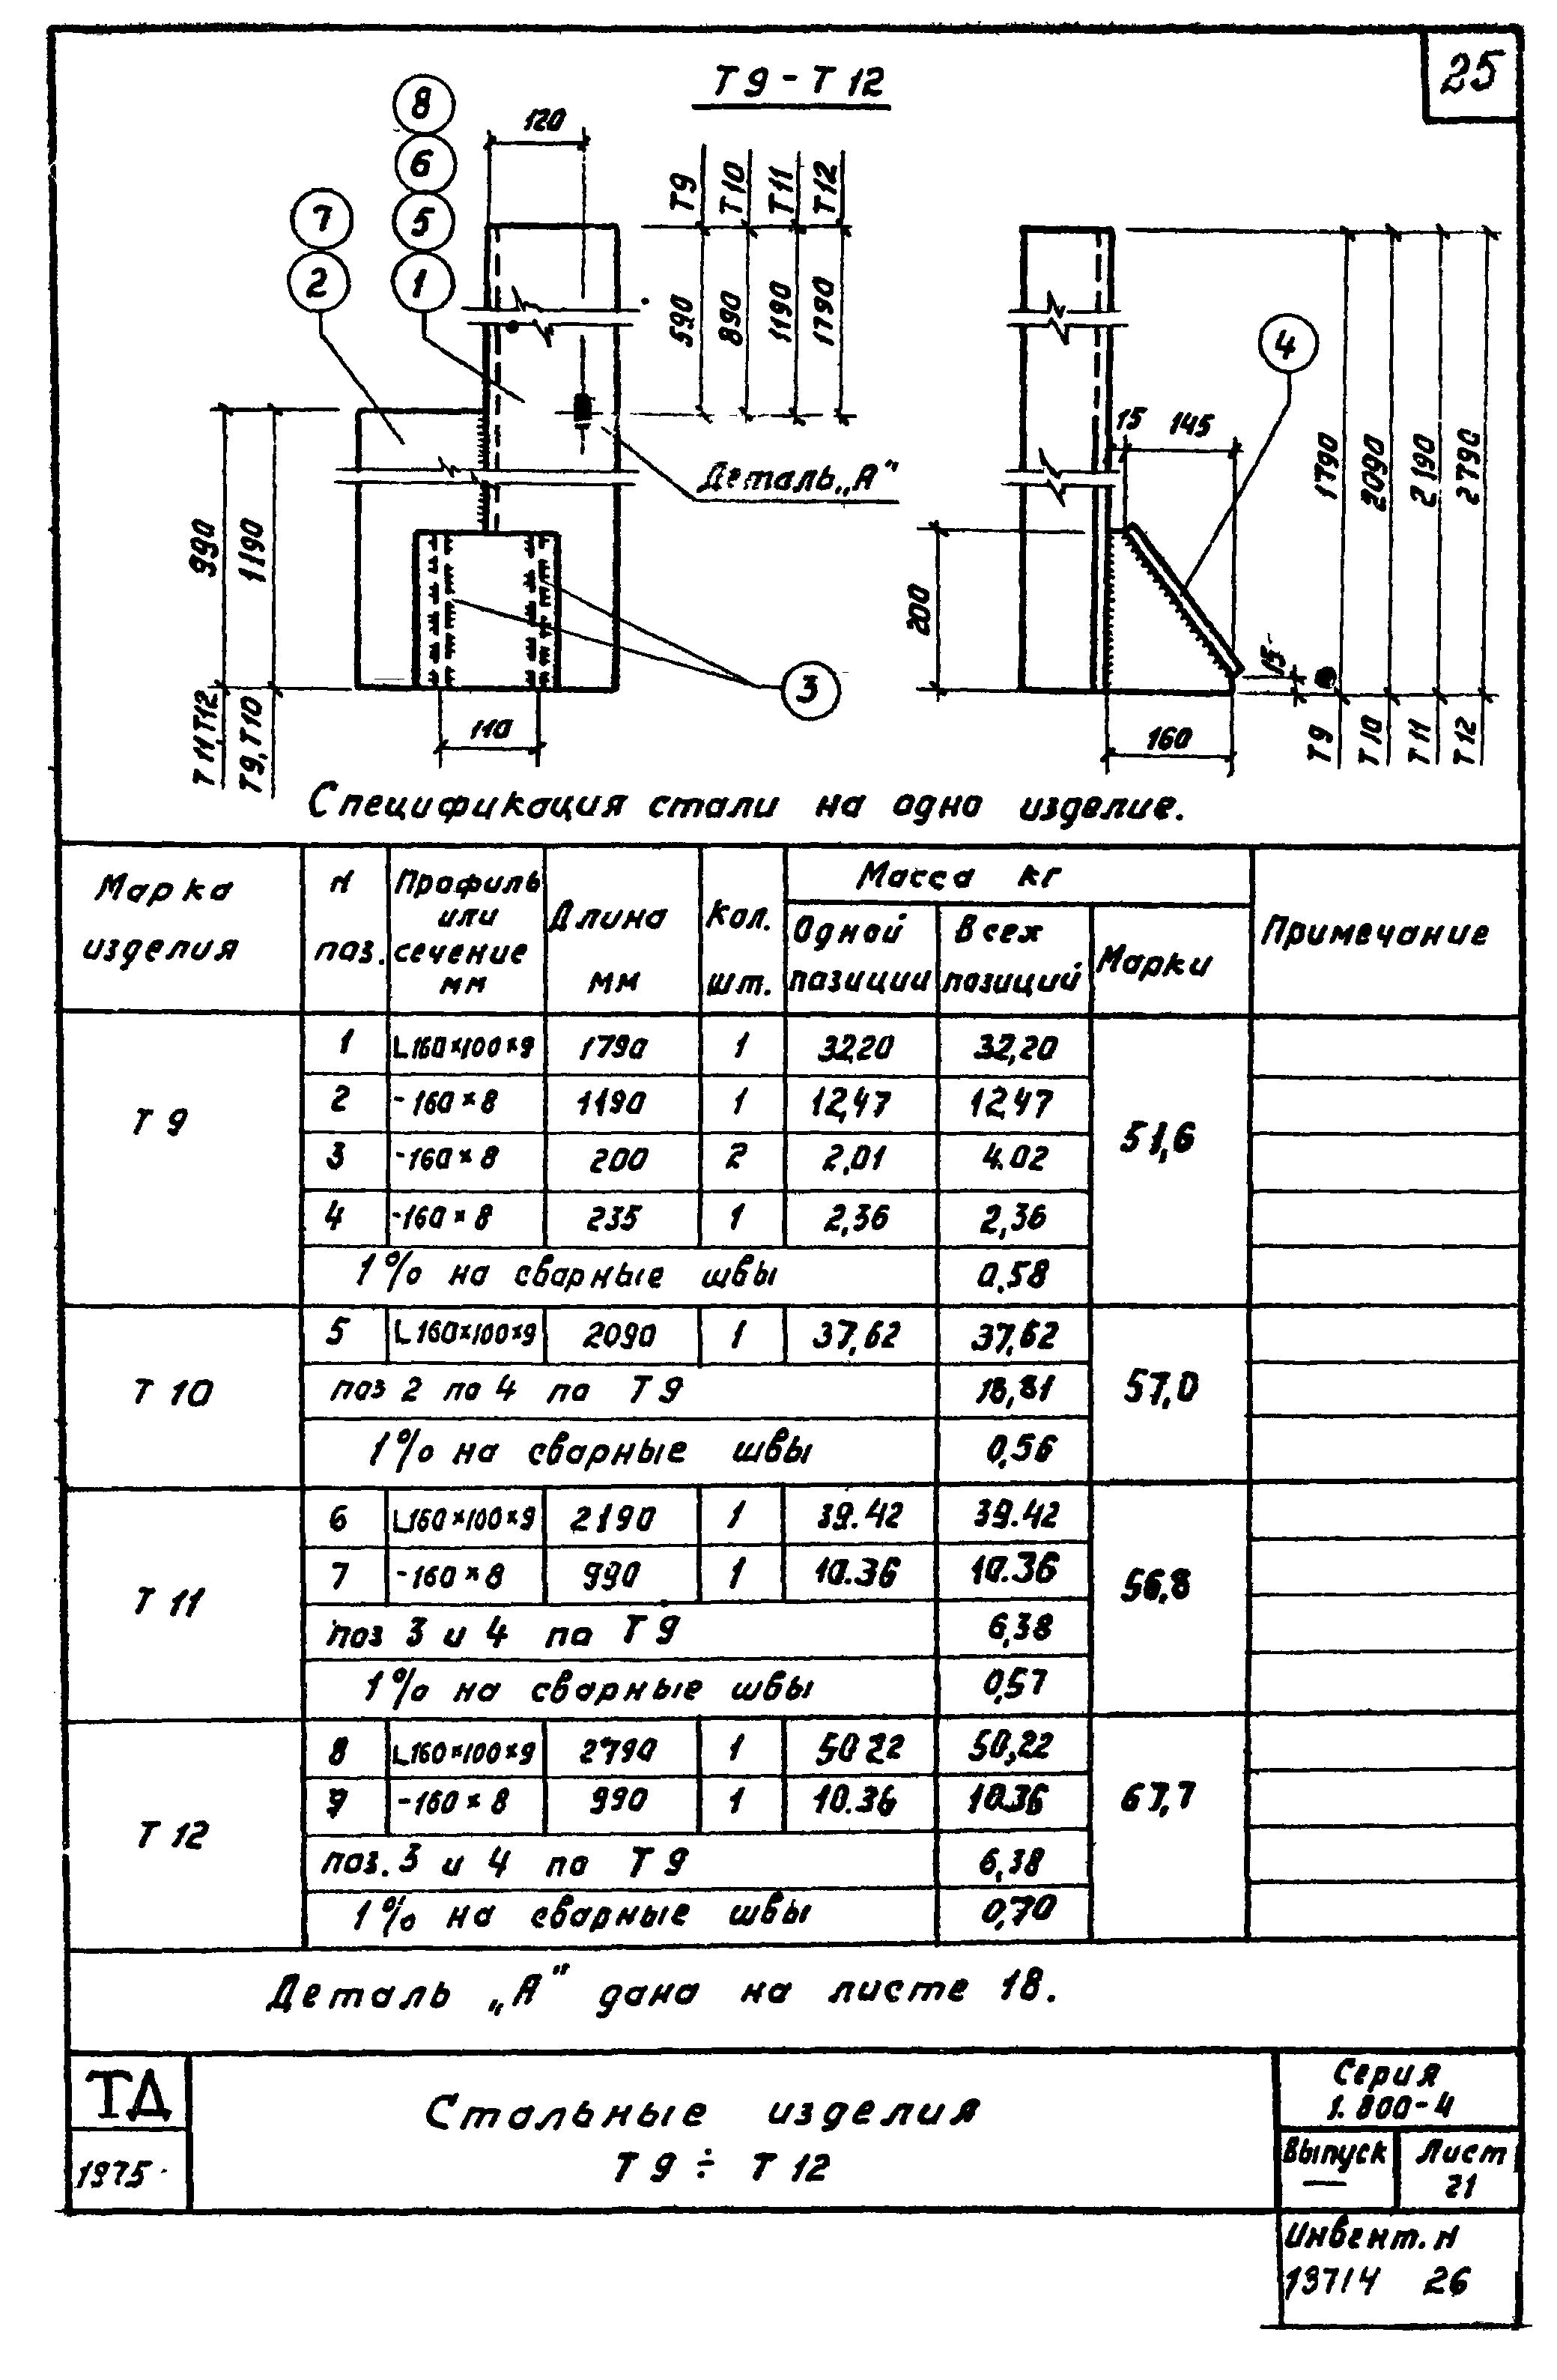 25
Т9-Т12
8
6
5
1
7
2
120
Т9 Т10 Т11 Т12
590 890 1190 1790
Деталь „А"
990 1190
Т11,Т12 Т9,Т10
110
3
4
15 145
200
15
160
1790 2090 2190 2790
Т9 Т10 Т11 Т12
Спецификация стали на одно изделие.
Марка изделия | N поз. | Профиль или сечение мм | Длина мм | Кол. шт. | Масса кг | Примечание
Одной позиции | Всех позиций | Марки
Т 9 | 1 | L160×100×9 | 1790 | 1 | 32,20 | 32,20 | 51,6
2 | -160×8 | 1190 | 1 | 12,47 | 12,47
3 | -160×8 | 200 | 2 | 2,01 | 4.02
4 | -160×8 | 235 | 1 | 2,36 | 2,36
1% на сварные швы | 0,58
Т 10 | 5 | L160×100×9 | 2090 | 1 | 37,62 | 37,62 | 57,0
поз 2 по 4 по Т9 | 18,81
1% на сварные швы | 0,56
Т 11 | 6 | L160×100×9 | 2190 | 1 | 39.42 | 39.42 | 56,8
7 | -160×8 | 990 | 1 | 10.36 | 10.36
поз 3 и 4 по Т9 | 6,38
1% на сварные швы | 0,57
Т 12 | 8 | L160×100×9 | 2790 | 1 | 50 22 | 50,22 | 67,7
-160×8 | 990 | 1 | 10.36 | 10.36
поз. 3 и 4 по Т9 | 6,38
1% на сварные швы | 0,70
Деталь „А" дана на листе 18.
ТД
1975
Стальные изделия
Т 9 ÷ Т 12
Серия
1.800-4
Выпуск
—
Лист
21
Инвент. N
13714 26